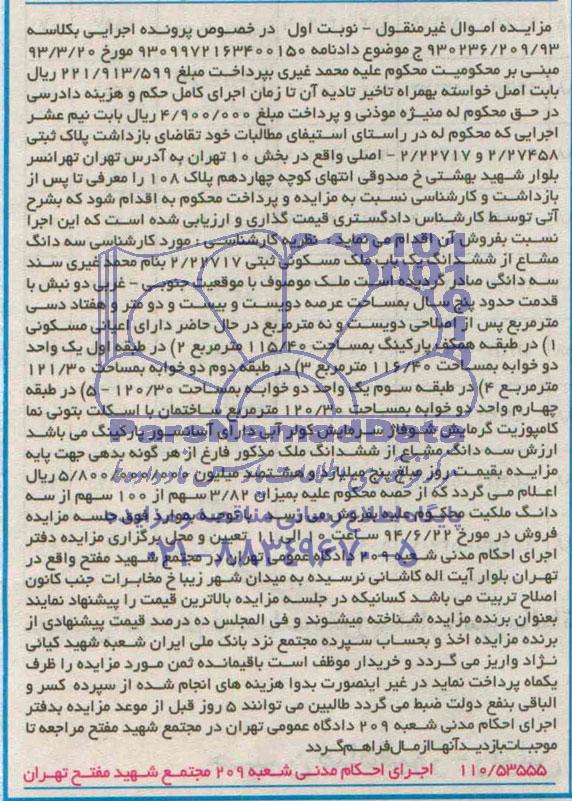 مزایده اموال غیرمنقول - نوبت اول  در خصوص پرونده اجرایی بکلاسه
۹۳۰۲۳۶/۲۰۹/۹۳ ج موضوع دادنامه ۹۳۰۹۹۷۲۱۶۳۴۰۰۱۵۰ مورخ ۹۳/۳/۲۰
مبنی بر محکومیت محکوم علیه محمد غیری بپرداخت مبلغ ۲۲۱/۹۱۳/۵۹۹ ریال
بابت اصل خواسته بهمراه تاخیر تادیه آن تا زمان اجرای کامل حکم و هزینه دادرسی
در حق محکوم له منیژه موذنی و پرداخت مبلغ ۴/۹۰۰/۰۰۰ ریال بابت نیم عشر
اجرایی که محکوم له در راستای استیفای مطالبات خود تقاضای بازداشت پلاک ثبتی
۲/۲۷۴۵۸ و ۲/۲۲۷۱۷ - اصلی واقع در بخش ۱۰ تهران به آدرس تهران تهرانسر
بلوار شهید بهشتی خ صدوقی انتهای کوچه چهاردهم پلاک ۱۰۸ را معرفی تا پس از
بازداشت و کارشناسی نسبت به مزایده و پرداخت محکوم به اقدام شود که بشرح
آتی توسط کارشناس دادگستری قیمت گذاری و ارزیابی شده است که این اجرا
نسبت بفروش آن اقدام می نماید. نظریه کارشناسی: مورد کارشناسی سه دانگ
مشاع از ششدانگ یک باب ملک مسکونی ثبتی ۲/۲۲۷۱۷ بنام محمد غیری سند
سه دانگی صادر گردیده است ملک موصوف با موقعیت جنوبی - غربی دو نبش با
قدمت حدود پنج سال بمساحت عرصه دویست و بیست و دو متر و هفتاد دسی
مترمربع پس از اصلاحی دویست و نه مترمربع در حال حاضر دارای اعیانی مسکونی
۱) در طبقه همکف پارکینگ بمساحت ۱۱۵/۴۰ مترمربع ۲) در طبقه اول یک واحد
دو خوابه بمساحت ۱۱۶/۴۰ مترمربع ۳) در طبقه دوم دو خوابه بمساحت ۱۲۱/۳۰
مترمربع ۴) در طبقه سوم یک واحد دو خوابه بمساحت ۱۲۰/۳۰ - ۵) در طبقه
چهارم واحد دو خوابه بمساحت ۱۲۰/۳۰ مترمربع ساختمان با اسکلت بتونی نما
کامپوزیت گرمایش شوفاژ سرمایش کولر آبی دارای آسانسور پارکینگ می باشد
ارزش سه دانگ مشاع از ششدانگ ملک مذکور فارغ از هر گونه بدهی جهت پایه
مزایده بقیمت روز مبلغ پنج میلیارد و هشتصد میلیون ۵/۸۰۰/۰۰۰/۰۰۰ ریال
اعلام می گردد که از حصه محکوم علیه بمیزان ۳/۸۲ سهم از ۱۰۰ سهم از سه
دانگ ملکیت محکوم علیه بفروش می رسد. با توجه بموارد فوق جلسه مزایده
فروش در مورخ ۹۴/۶/۲۲ ساعت ۱۰ الی ۱۱ تعیین و محل برگزاری مزایده دفتر
اجرای احکام مدنی شعبه ۲۰۹ دادگاه عمومی تهران در مجتمع شهید مفتح واقع در
تهران بلوار آیت اله کاشانی نرسیده به میدان شهر زیبا خ مخابرات جنب کانون
اصلاح تربیت می باشد کسانیکه در جلسه مزایده بالاترین قیمت را پیشنهاد نمایند
بعنوان برنده مزایده شناخته میشوند و فی المجلس ده درصد قیمت پیشنهادی از
برنده مزایده اخذ و بحساب سپرده مجتمع نزد بانک ملی ایران شعبه شهید کیائی
نژاد واریز می گردد و خریدار موظف است باقیمانده ثمن مورد مزایده را ظرف
یکماه پرداخت نماید در غیر اینصورت بدوا هزینه های انجام شده از سپرده کسر و
الباقی بنفع دولت ضبط می گردد طالبین می توانند ۵ روز قبل از موعد مزایده بدفتر
اجرای احکام مدنی شعبه ۲۰۹ دادگاه عمومی تهران در مجتمع شهید مفتح مراجعه تا
موجبات بازدید آنها از مال فراهم گردد
۱۱۰/۵۳۵۵۵ اجرای احکام مدنی شعبه ۲۰۹ مجتمع شهید مفتح تهران
ParsNamadData
پایگاه اطلاع رسانی مناقصه و مزایده
۰۲۱-۸۸۳۴۹۶۷۰-۵